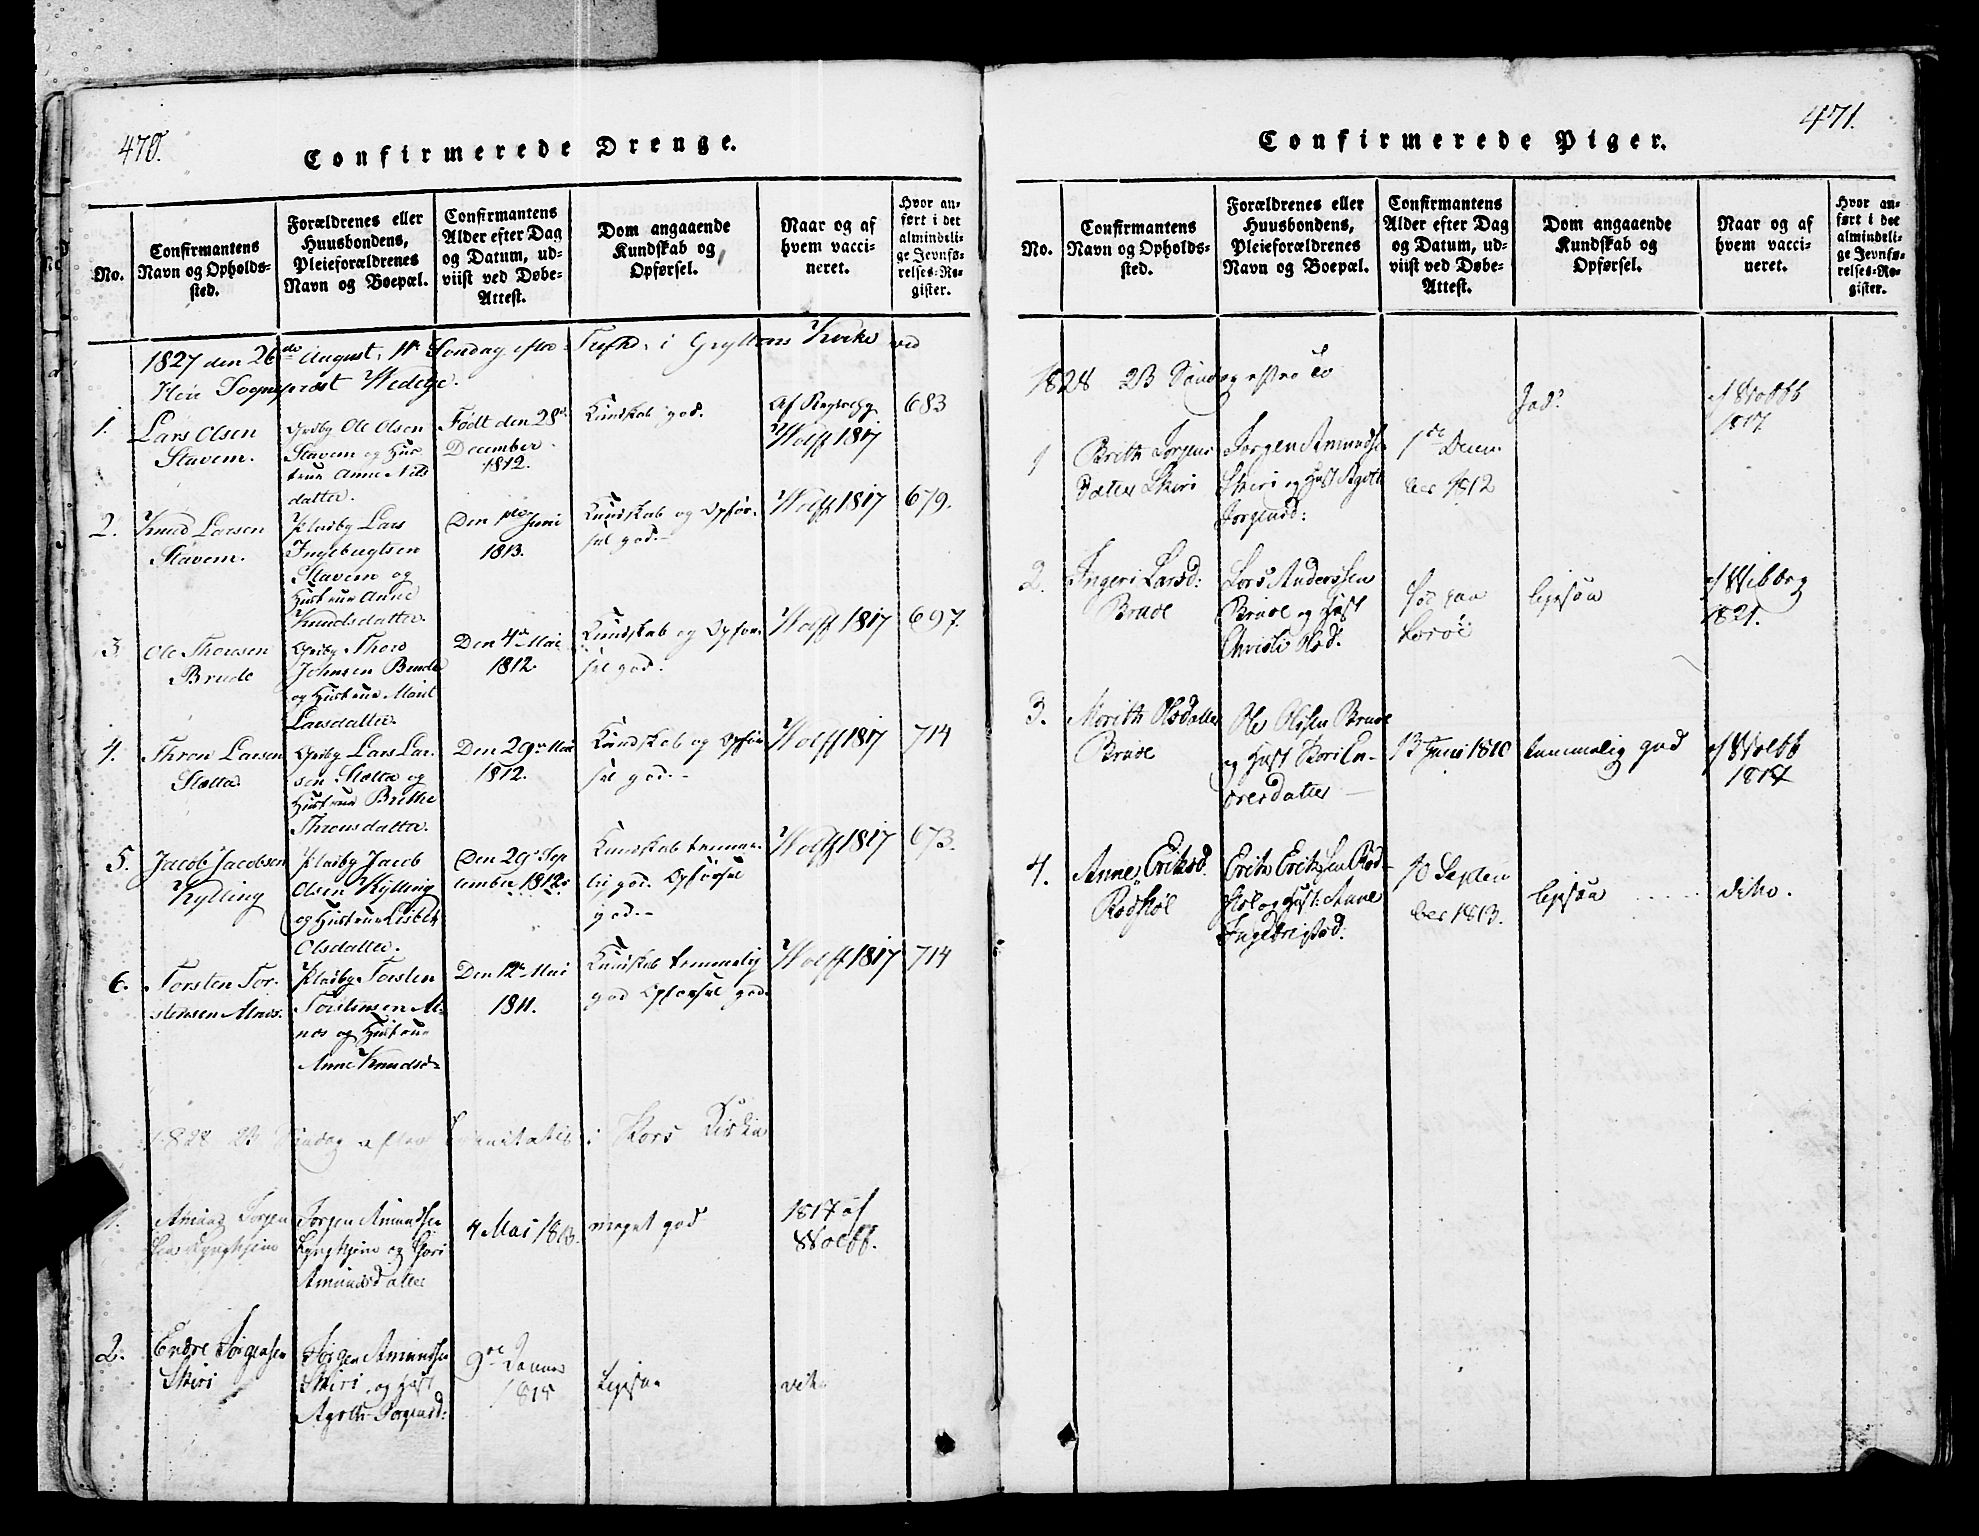 470.
Confirmerede Drenge.
No.
Confirmantens
Navn og Opholds-
sted.
Forældrenes eller
Huusbondens,
Pleieforældrenes
Navn og Boepæl.
Confirmantens
Alder efter Dag
og Datum, ud-
viist ved Døbe-
Attest.
Dom angaaende
Kundskab og
Opførsel.
Naar og af
hvem vacci-
neret.
Hvor an-
ført i det
almindeli-
ge Jevnfø-
relses-Re-
gister.
1827 den 26de August, 11 Søndag efter i Gryttens Kirke ved
Sogneprost Wedege.
1.
Lars Olsen
Stavem.
Ole Olsen
Stavem og Hus
true Anne Nils
datter.
Født den 28de
December
1812.
Kundskab god.
Af
Wolff 1817
683
2.
Knud Larsen
Stavem.
Pladsby Lars
Ingebrigtsen
Stavem og
Hustrue Anne
Knudsdatter.
Den Juni
1813.
Kundskab og Opfør-
sel god.-
Wolff 1817
679.
3.
Ole Thoresen
Brude
Thore
Johnsen Brude
og Hustrue Marit
Larsdatter.
Den 4de Mai
1812.
Kundskab og Opfør-
sel god.
Wolff 1817
697.
4.
Thron Larsen
Slætta
Lars Lar-
sen Slætta og
Hustrue Brithe
Thronsdatter.
Den 29de Mai
1812.
Kundskab og Opfør-
sel god.-
Wolff 1817
714
5.
Jacob Jacobsen
Kylling
Pladsby Jacob
Olsen Kylling
og Hustrue Lisbeth
Olsdatter.
Den 29de Sep
tember 1812
Kundskab temme-
lig god. Opførsel
god.-
Wolff 1817
673.
6.
Torsten Tor-
stensen Alnæs.
Pladsby Torsten
Torstensen Al-
næs og Hustrue
Anne Knudsd
Den 12te Mai
1811.
Kundskab temmelig
god Opførsel god.
Wolff 1817
714
1828 23 Søndag efter Trinitatis i Kors Kirke
1.
Amund Jørgen
sen Lyngheim
Jørgen Amundsen
Lyngheim og
Amundsdatter
4 Mai 1813.
meget god
1817 af
Wolff.
2.
Endre Jørgensen
Skiri
Jørgen Amundsen
Skiri og Hust
Agethe Jørgensd:
9de Januar
1815
ligesaa
471.
Confirmerede Piger.
No.
Confirmantens
Navn og Opholds-
sted.
Forældrenes eller
Huusbondens,
Pleieforældrenes
Navn og Boepæl.
Confirmantens
Alder efter Dag
og Datum, ud-
viist ved Døbe-
Attest.
Dom angaaende
Kundskab og
Opførsel.
Naar og af
hvem vacci-
neret.
Hvor an-
ført i det
almindeli-
ge Jevnfø-
relses-Re-
gister.
1828 23 Søndag efter
1
Brith Jørgens
datter Skiri
Jørgen Amundsen
Skiri og Hust Agethe
Jørgensd:
1de Decem
ber 1812
God
af Wolff
1817
2.
Ingeri Larsd:
Brude
Lars Anderssen
Brude og Hust
Christi Olsd.
ligesaa
af Wiborg
1821.
3.
Marith Olsdatter
Brude
Ole Olsen Brude
og Hust
13 Juni 1810
temmelig god
af Wolff
1817
4.
Anne Eriksd.
Rødstøl
Erik Eriksen Rød-
støl og Hust: Anne
Ingebrigtsd:
10 Septem
ber 1813.
ligesaa
dito.